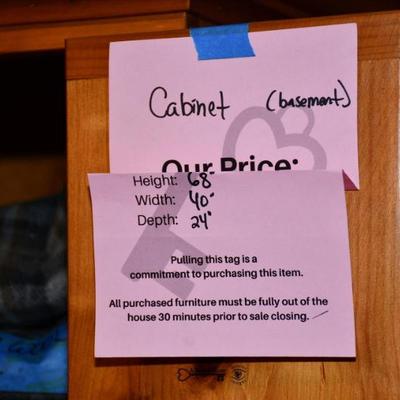 Cabinet (basement)
Our Price:
Height: 68"
Width: 40"
Depth: 24"
Pulling this tag is a
commitment to purchasing this item.
All purchased furniture must be fully out of the
house 30 minutes prior to sale closing.